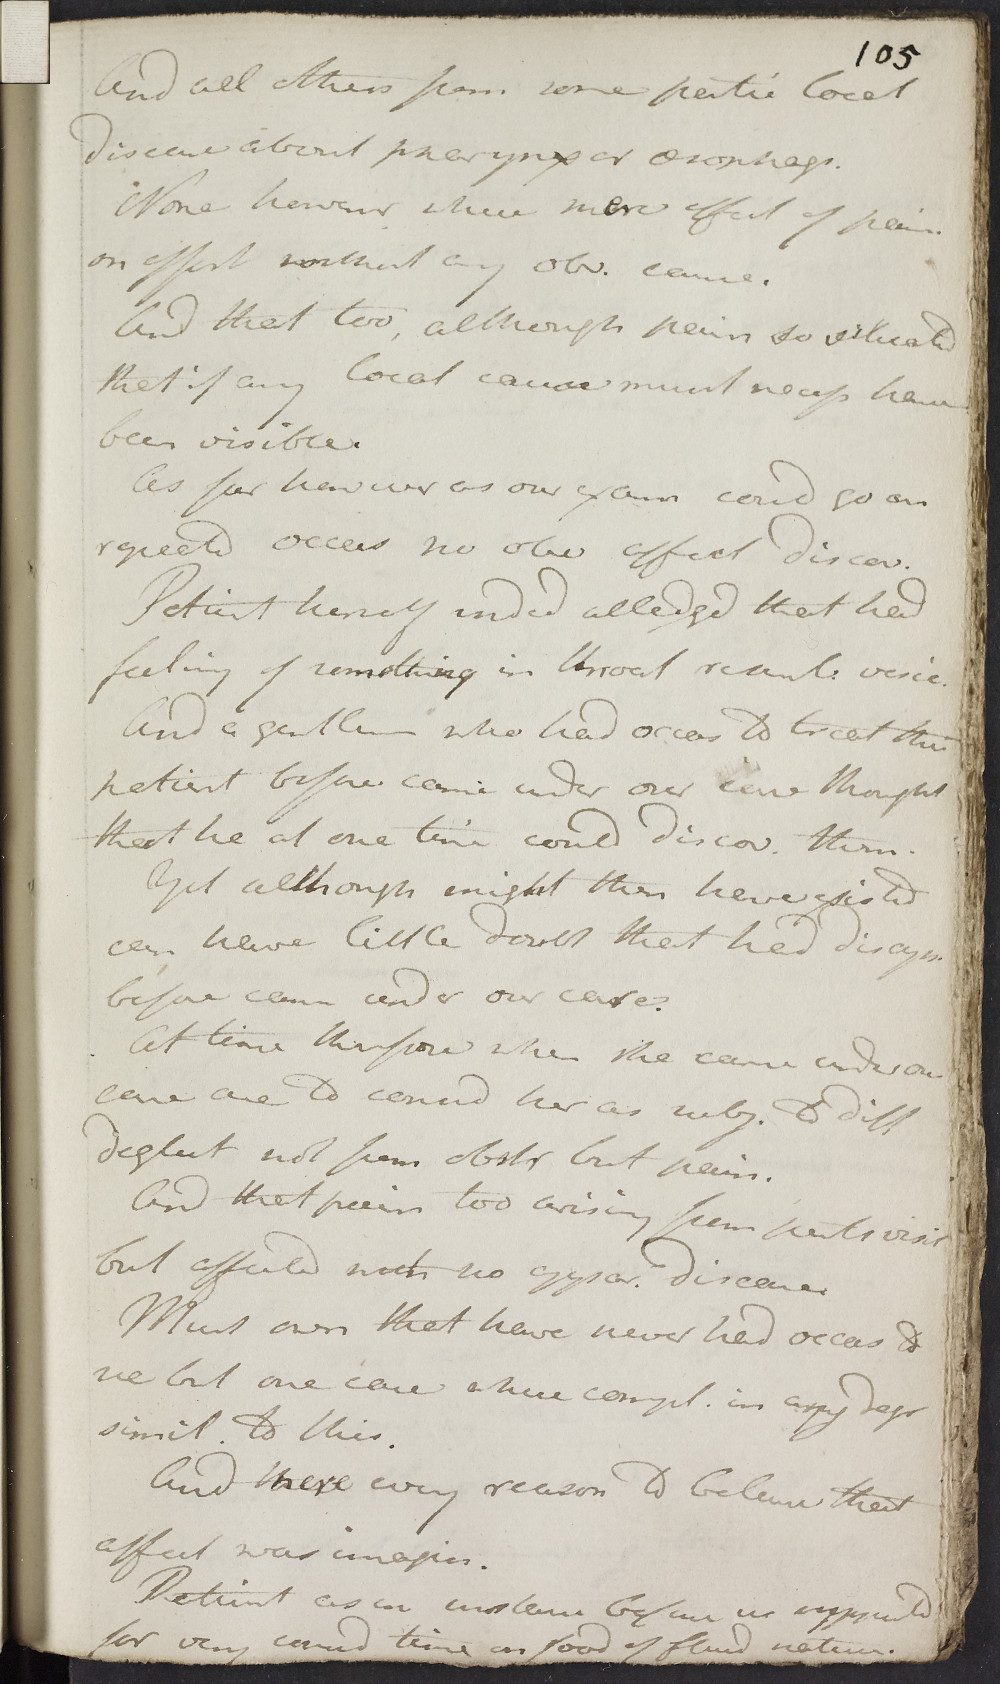 105
And all others from some partic local
disease about pharynx or œsophags.
None however where mere effect of pain
on effort without any obv. cause.
And that too, although pain so situated
that if any local cause must necess have
been visible.
As far however as our exam could go on
repeated occas no obv affect discov.
Patient herself indeed alledged that had
feeling of something in throat resemb. vesic.
And a gentlem who had occas to treat this
patient before came under our care thought
that he at one time could discov. them.
Yet although might then have existed
can have little doubt that had disapp
before came under our care.
At time therefore when she came under our
care are to consid her as subj. to diff
deglut not from obstr but pain.
And that pain too arising from parts visib
but affected with no appar. disease.
Must own that have never had occas to
see but one case where compl. in any degr
simil. to this.
And there every reason to believe that
affect was imagin.
Patient as in instance before us supported
for very consid time on food of fluid nature.